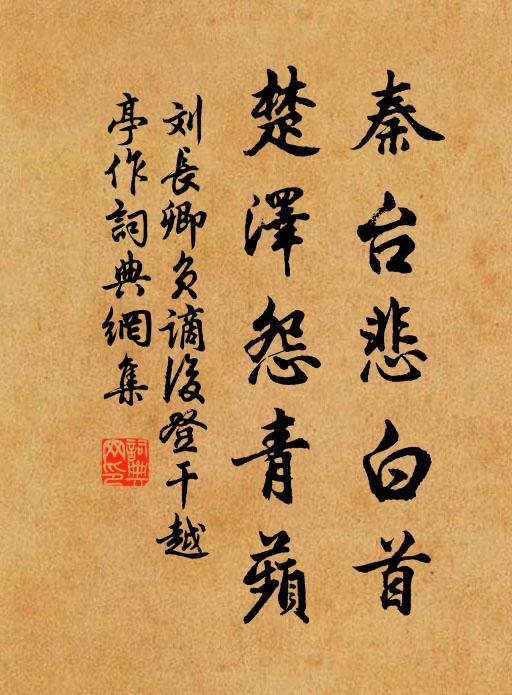 秦台悲白首
楚澤怨青蘋
刘長卿负謫後登干越
亭作詞典網集
詞典網印